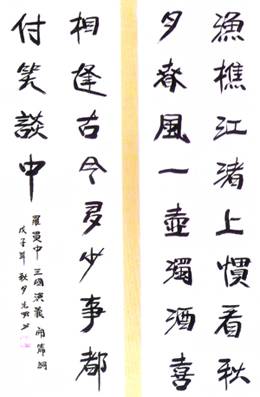 漁樵江渚上慣看秋
月春風一壺濁酒喜
相逢古今多少事都
付笑談中
羅貫中三國演義開篇詞
戊子年秋月